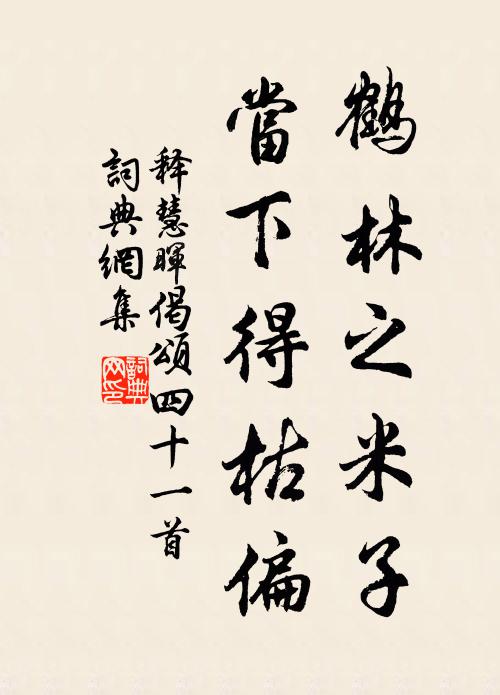 鶴林之米子
當下得枯偏
释慧暉偈頌四十一首
詞典網集
詞典
网印